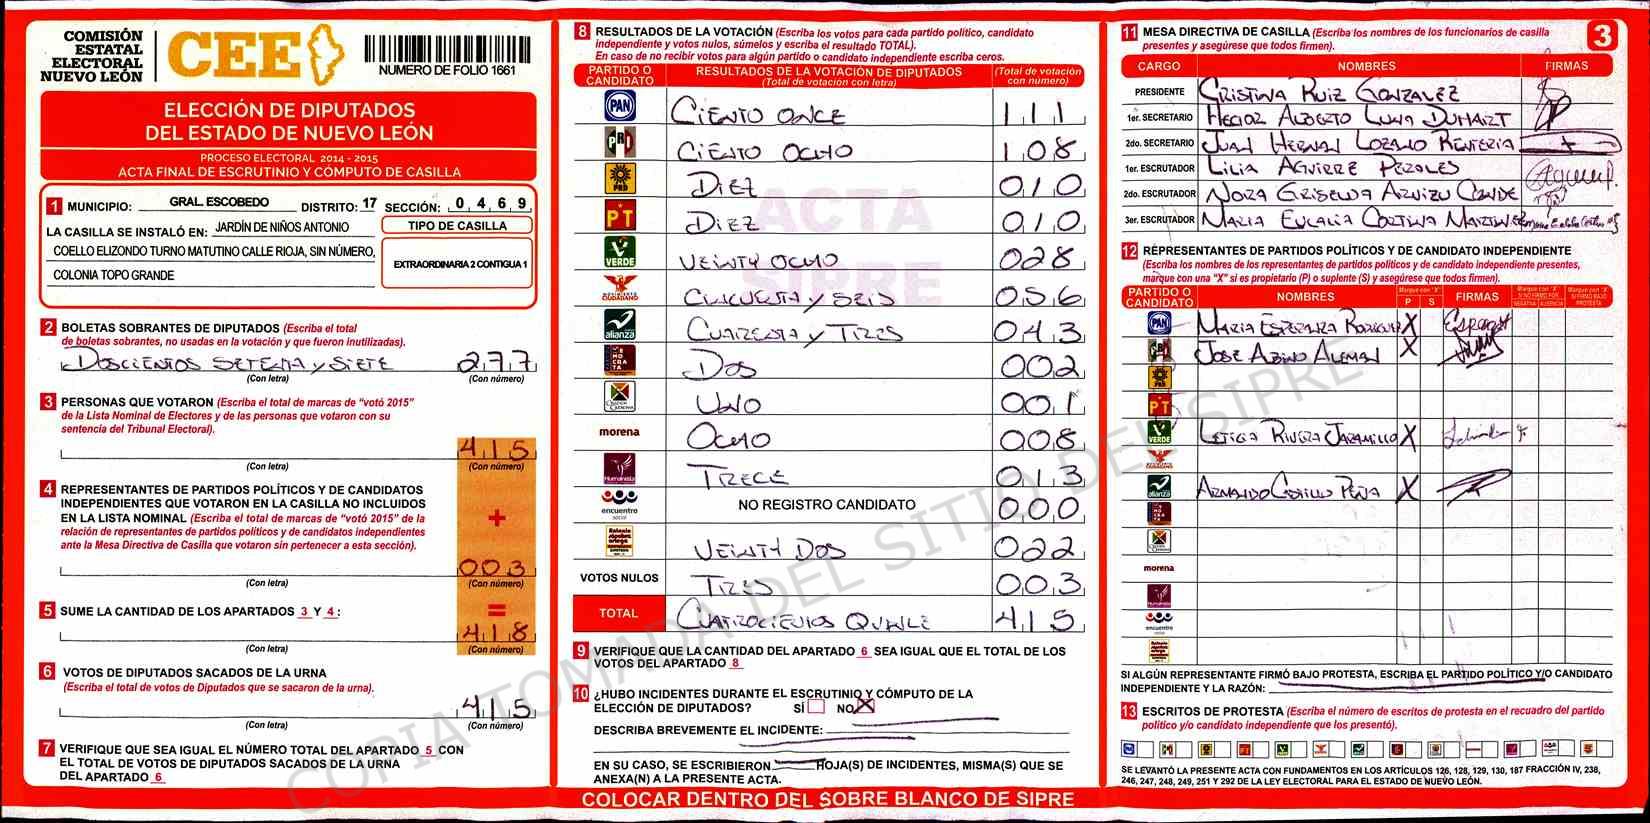 COMISIÓN
ESTATAL
ELECTORAL
NUEVO LEÓN
CEE
NUMERO DE FOLIO 1661
ELECCIÓN DE DIPUTADOS
DEL ESTADO DE NUEVO LEÓN
PROCESO ELECTORAL 2014 - 2015
ACTA FINAL DE ESCRUTINIO Y CÓMPUTO DE CASILLA
1 MUNICIPIO: GRAL. ESCOBEDO DISTRITO: 17 SECCIÓN: 0 4 6 9
LA CASILLA SE INSTALÓ EN: JARDÍN DE NIÑOS ANTONIO
COELLO ELIZONDO TURNO MATUTINO CALLE RIOJA, SIN NÚMERO,
COLONIA TOPO GRANDE
TIPO DE CASILLA
EXTRAORDINARIA 2 CONTIGUA 1
2 BOLETAS SOBRANTES DE DIPUTADOS (Escriba el total
de boletas sobrantes, no usadas en la votación y que fueron inutilizadas).
DOSCIENTOS SETENTA y SIETE 277
(Con letra) (Con número)
3 PERSONAS QUE VOTARON (Escriba el total de marcas de “votó 2015”
de la Lista Nominal de Electores y de las personas que votaron con su
sentencia del Tribunal Electoral).
415
(Con letra) (Con número)
4 REPRESENTANTES DE PARTIDOS POLÍTICOS Y DE CANDIDATOS
INDEPENDIENTES QUE VOTARON EN LA CASILLA NO INCLUIDOS
EN LA LISTA NOMINAL (Escriba el total de marcas de “votó 2015” de la
relación de representantes de partidos políticos y de candidatos independientes
ante la Mesa Directiva de Casilla que votaron sin pertenecer a esta sección).
+
003
(Con letra) (Con número)
5 SUME LA CANTIDAD DE LOS APARTADOS 3 Y 4 :
=
418
(Con letra) (Con número)
6 VOTOS DE DIPUTADOS SACADOS DE LA URNA
(Escriba el total de votos de Diputados que se sacaron de la urna).
415
(Con letra) (Con número)
7 VERIFIQUE QUE SEA IGUAL EL NÚMERO TOTAL DEL APARTADO 5 CON
EL TOTAL DE VOTOS DE DIPUTADOS SACADOS DE LA URNA
DEL APARTADO 6
8 RESULTADOS DE LA VOTACIÓN (Escriba los votos para cada partido político, candidato
independiente y votos nulos, súmelos y escriba el resultado TOTAL).
En caso de no recibir votos para algún partido o candidato independiente escriba ceros.
PARTIDO O CANDIDATO
RESULTADOS DE LA VOTACIÓN DE DIPUTADOS
(Total de votación con letra)
(Total de votación con número)
PAN CIENTO ONCE 111
PRI CIENTO OCHO 108
PRD DIEZ 010
PT DIEZ 010
VERDE VEINTY OCHO 028
MOVIMIENTO CIUDADANO CINCUENTA y SEIS 056
alianza CUARENTA y TRES 043
DEMOCRATA DOS 002
UNO 001
morena OCHO 008
Humanista TRECE 013
encuentro social NO REGISTRO CANDIDATO 000
VEINTY DOS 022
VOTOS NULOS TRES 003
TOTAL CUATROCIENTOS QUINCE 415
9 VERIFIQUE QUE LA CANTIDAD DEL APARTADO 6 SEA IGUAL QUE EL TOTAL DE LOS
VOTOS DEL APARTADO 8
10 ¿HUBO INCIDENTES DURANTE EL ESCRUTINIO Y CÓMPUTO DE LA
ELECCIÓN DE DIPUTADOS? SÍ NO X
DESCRIBA BREVEMENTE EL INCIDENTE:
EN SU CASO, SE ESCRIBIERON HOJA(S) DE INCIDENTES, MISMA(S) QUE SE
ANEXA(N) A LA PRESENTE ACTA.
COLOCAR DENTRO DEL SOBRE BLANCO DE SIPRE
ACTA
SIPRE
COPIA TOMADA DEL SITIO DEL SIPRE
11 MESA DIRECTIVA DE CASILLA (Escriba los nombres de los funcionarios de casilla
presentes y asegúrese que todos firmen).
3
CARGO NOMBRES FIRMAS
PRESIDENTE CRISTINA RUIZ GONZALEZ
1er. SECRETARIO HECTOR ALBERTO LUNA DUHART
2do. SECRETARIO JUAN HERNAN LOZANO RENTERIA
1er. ESCRUTADOR LILIA AGUIRRE PERALES
2do. ESCRUTADOR NORA GRISELDA ARVIZU CONDE
3er. ESCRUTADOR MARIA EUCALIA CORTINA MARTINEZ
12 REPRESENTANTES DE PARTIDOS POLÍTICOS Y DE CANDIDATO INDEPENDIENTE
(Escriba los nombres de los representantes de partidos políticos y de candidato independiente presentes,
marque con una "X" si es propietario (P) o suplente (S) y asegúrese que todos firmen).
PARTIDO O CANDIDATO NOMBRES Marque con "X" P S FIRMAS Marque con "X" SI NO FIRMÓ POR: NEGATIVA AUSENCIA Marque con "X" SI FIRMÓ BAJO PROTESTA
PAN MARIA ESPERANZA RODRIGUEZ X
PRI JOSE ALBINO ALEMAN X
PRD
PT
VERDE LETICIA RIVERA JARAMILLO X
alianza ARMANDO CASTILLO PEÑA X
morena
Humanista
encuentro social
SI ALGÚN REPRESENTANTE FIRMÓ BAJO PROTESTA, ESCRIBA EL PARTIDO POLÍTICO Y/O CANDIDATO
INDEPENDIENTE Y LA RAZÓN:
13 ESCRITOS DE PROTESTA (Escriba el número de escritos de protesta en el recuadro del partido
político y/o candidato independiente que los presentó).
SE LEVANTÓ LA PRESENTE ACTA CON FUNDAMENTOS EN LOS ARTÍCULOS 126, 128, 129, 130, 187 FRACCIÓN IV, 238,
246, 247, 248, 249, 251 Y 292 DE LA LEY ELECTORAL PARA EL ESTADO DE NUEVO LEÓN.